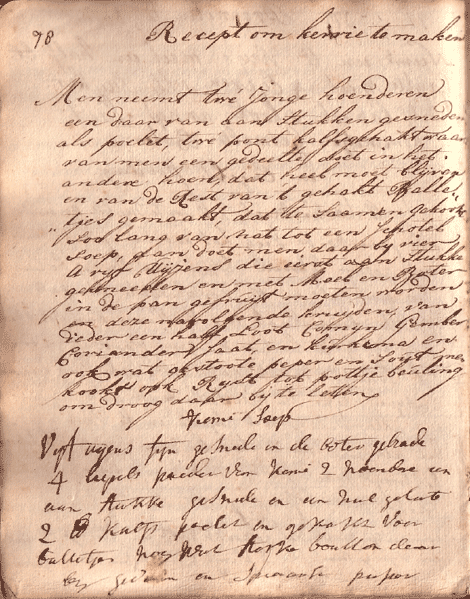 98 Recept om kerrie to maken
Men neemt twe Jonge hoenderen
een daar van aan Stukken gesneden
als poelet, twe pont kalfsgehakt waar
van men een gedeelte doet in het
andere hoen, dat heel moet blijven
en van de Rest van 't gehakt Balle-
tjes gemaakt, dat te Saamen gekookt
Soo lang van nat tot een Schotel
Soep, dan doet men daar by vier
Uijens die eerst aan Stukke
gesneeden en met Meel en Boter
in de pan gefruijt moeten worden
en deze navolgende kruijden, van
ieder een half Loot Comyn Gember
Coriander Saat en kurkema en
ook wat gestoote peper en Sout, men
kookt ook Ryst tot
om droog daar by te Eeten
kerri Soep
Vyf uyens fyn gesnede in de boter gebrade
4 lepels poeder van kerri 2 hoendre een
aan stukke gesnede en een heel gelate
2 lb kalfs poelet en gehakt voor
balletjes nog wat sterke boullon daar
by gedaan en spaanse peper